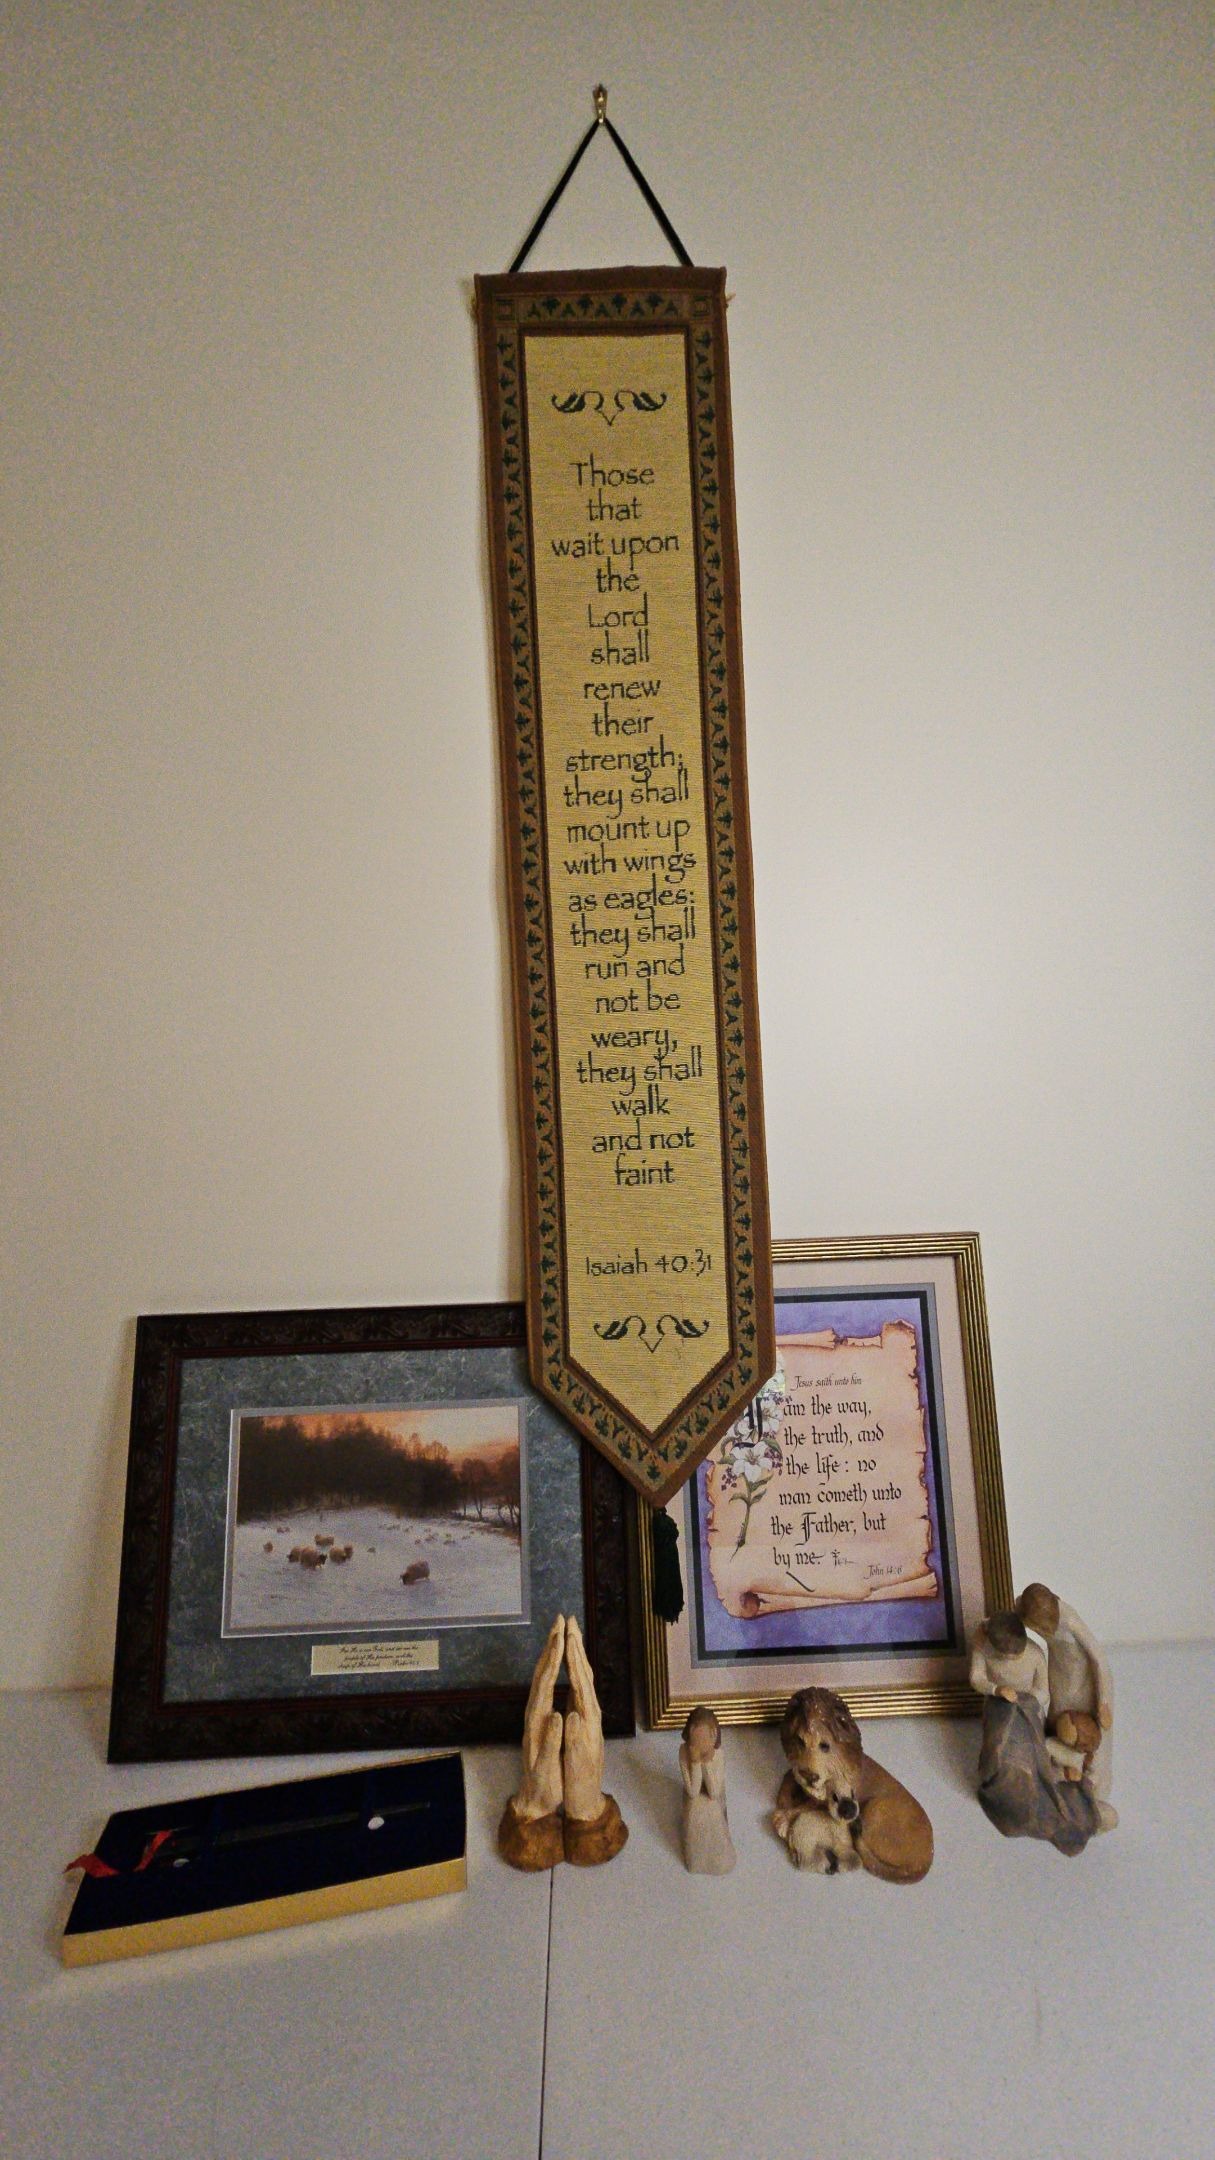 Those
that
wait upon
the
Lord
shall
renew
their
strength;
they shall
mount up
with wings
as eagles:
they shall
run and
not be
weary,
they shall
walk
and not
faint
Isaiah 40:31
Jesus saith unto him
I am the way,
the truth, and
the life: no
man cometh unto
the Father, but
by me.
John 14:6
For He is our God, and we are the
people of His pasture, and the
sheep of His hand.